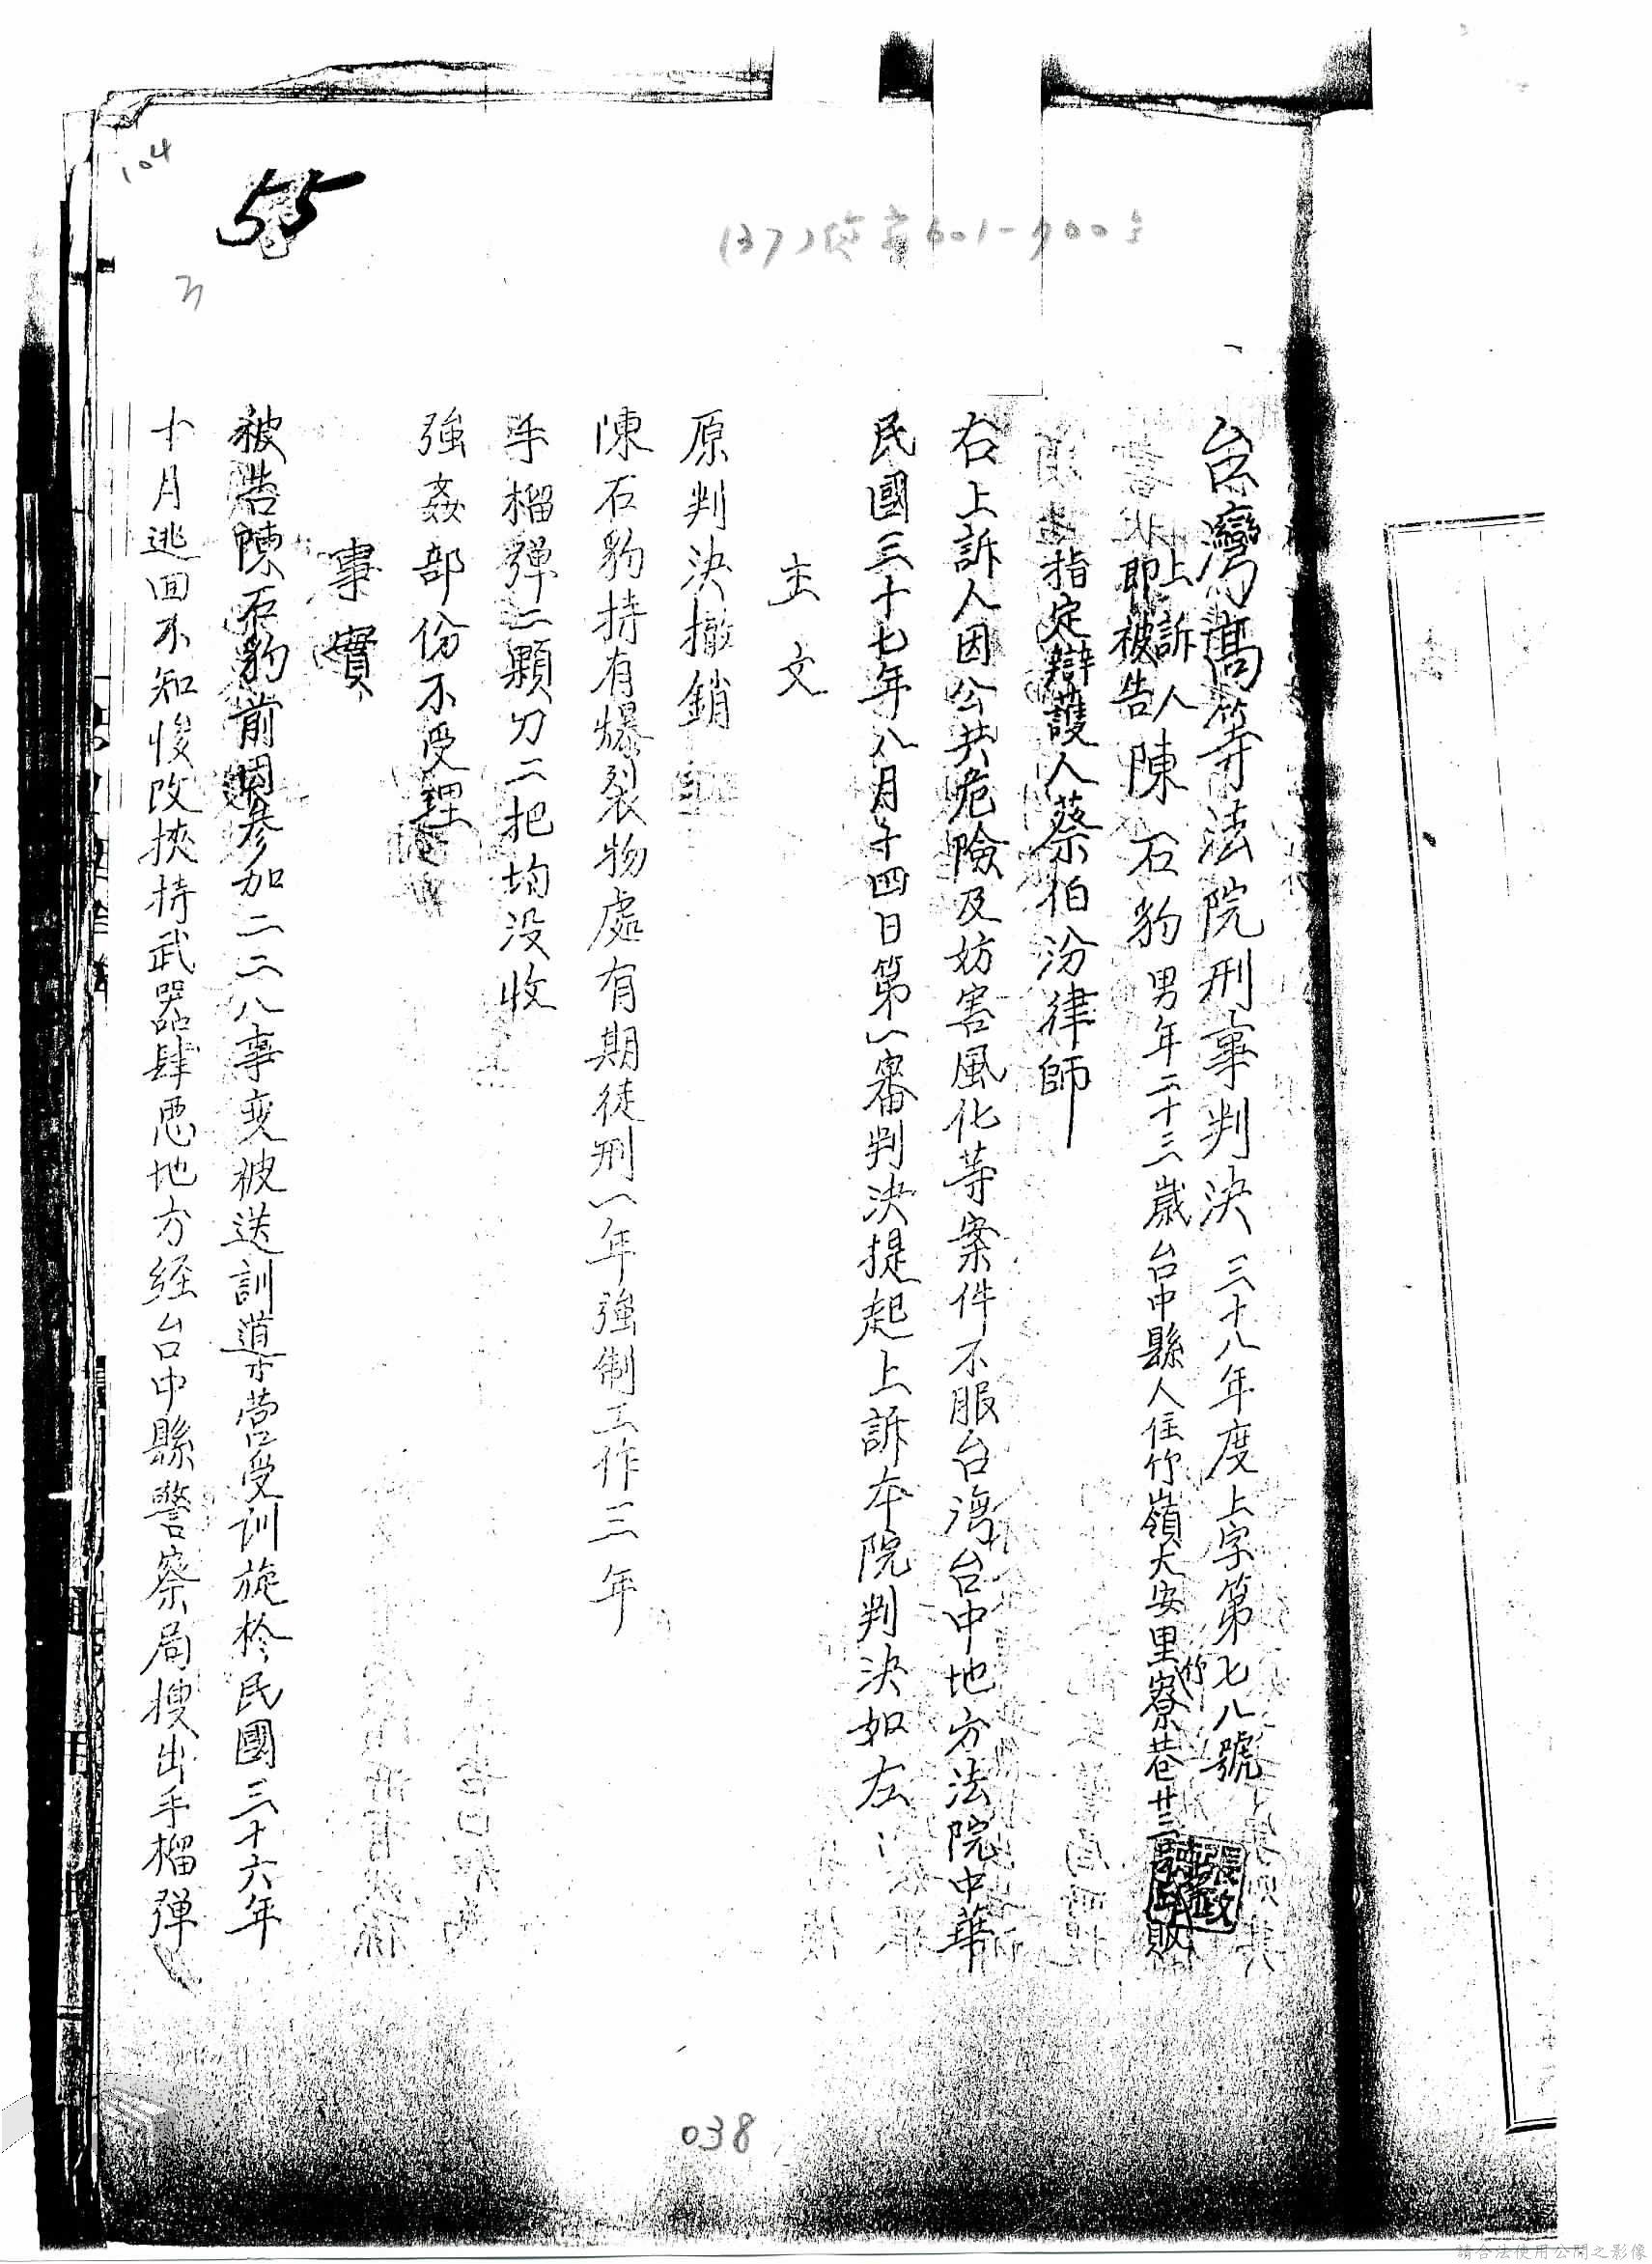 104
55
台灣高等法院刑事判決 三十八年度上字第七八號
上訴人
即被告 陳石豹 男年二十三歲台中縣人住竹嶺大安里竹寮巷廿三
指定辯護人蔡伯汾律師
右上訴人因公共危險及妨害風化等案件不服台灣台中地方法院中華
民國三十七年八月十四日第一審判決提起上訴本院判決如左：
主文
原判決撤銷
陳石豹持有爆裂物處有期徒刑一年強制工作三年
手榴弹二顆刀二把均没收
強姦部份不受理
事實
被告陳石豹前因參加二二八事变被送訓導营受训旋於民國三十六年
十月逃回不知悛改挾持武器肆恶地方経台中縣警察局搜出手榴弹
038
請合法使用公開之影像